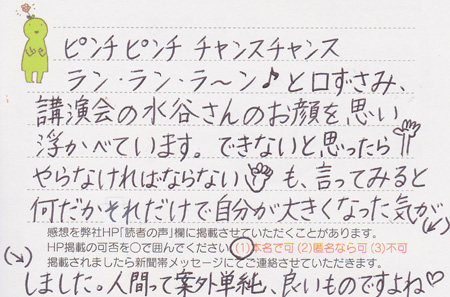 ピンチピンチ チャンスチャンス
ラン・ラン・ラ〜ン♪と口ずさみ、
講演会の水谷さんのお顔を思い
浮かべています。できないと思ったら
やらなければならない も、言ってみると
何だかそれだけで自分が大きくなった気が(↓)
感想を弊社HP「読者の声」欄に掲載させていただくことがあります。
HP掲載の可否を○で囲んでください (1)本名で可 (2)匿名なら可 (3)不可
掲載されましたら新聞帯メッセージにてご連絡させていただきます。
(↘)
しました。人間って案外単純、良いものですよね♡